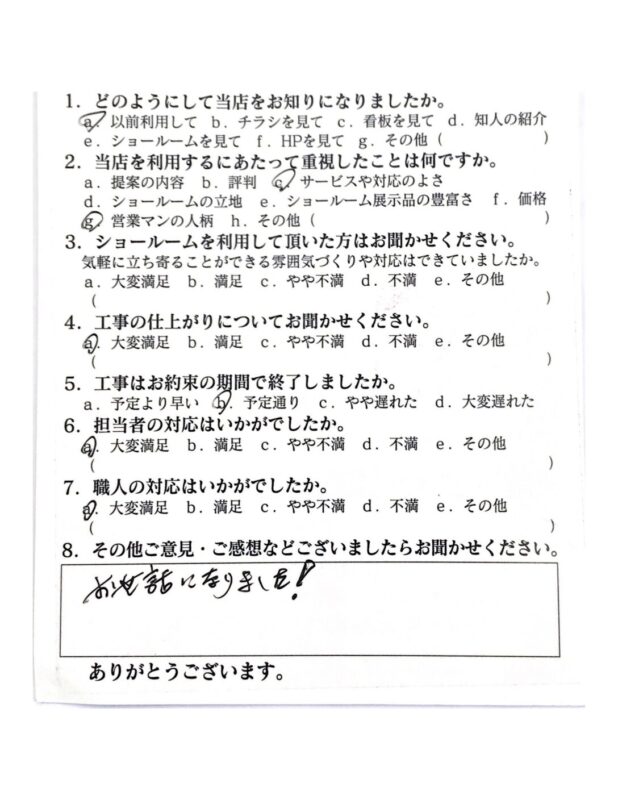 1．どのようにして当店をお知りになりましたか。
a．以前利用して b．チラシを見て c．看板を見て d．知人の紹介
e．ショールームを見て f．HPを見て g．その他（　　　　　　）
2．当店を利用するにあたって重視したことは何ですか。
a．提案の内容 b．評判 c．サービスや対応のよさ
d．ショールームの立地 e．ショールーム展示品の豊富さ f．価格
g．営業マンの人柄 h．その他（　　　　　　）
3．ショールームを利用して頂いた方はお聞かせください。
気軽に立ち寄ることができる雰囲気づくりや対応はできていましたか。
a．大変満足 b．満足 c．やや不満 d．不満 e．その他
（　　　　　　）
4．工事の仕上がりについてお聞かせください。
a．大変満足 b．満足 c．やや不満 d．不満 e．その他
（　　　　　　）
5．工事はお約束の期間で終了しましたか。
a．予定より早い b．予定通り c．やや遅れた d．大変遅れた
6．担当者の対応はいかがでしたか。
a．大変満足 b．満足 c．やや不満 d．不満 e．その他
（　　　　　　）
7．職人の対応はいかがでしたか。
a．大変満足 b．満足 c．やや不満 d．不満 e．その他
（　　　　　　）
8．その他ご意見・ご感想などございましたらお聞かせください。
お世話になりました！
ありがとうございます。